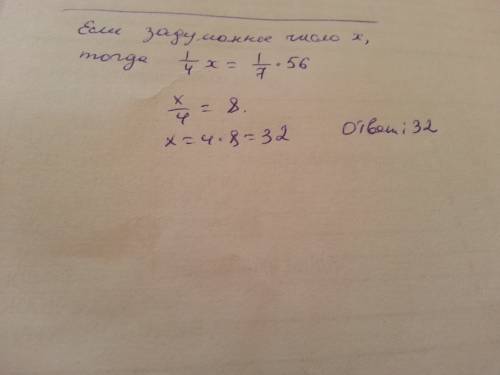 Если задуманное число x,
тогда 1/4 x = 1/7 · 56
x/4 = 8.
x = 4 · 8 = 32
Ответ: 32